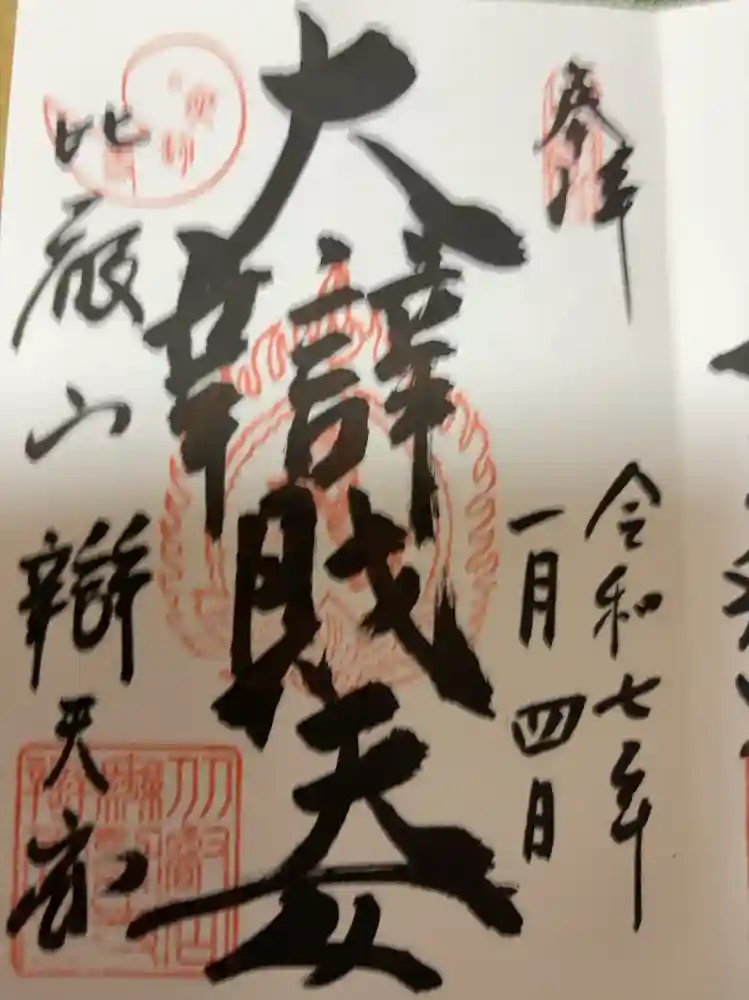 奉拝
令和七年
一月四日
大辯財天女
比叡山辯天宮